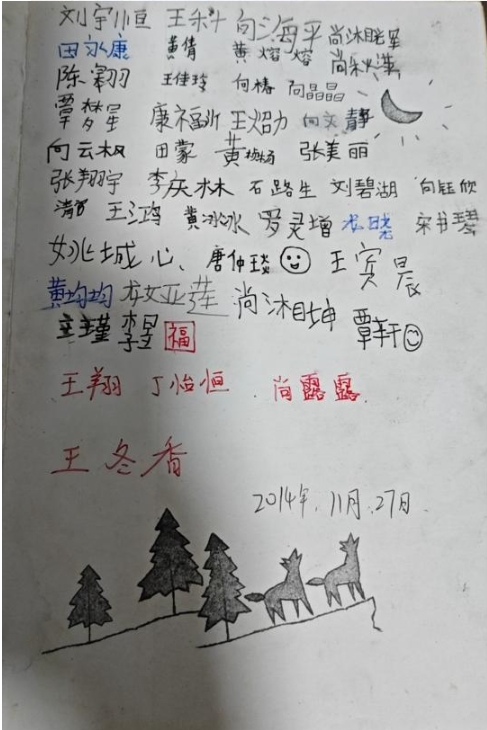 刘宇恒 王科 向海平 尚沐
田永康 黄倩 黄熔熔 尚
陈翱羽 王佳玲 向椿 向晶晶
覃梦星 康福 王焰 向文静
向云权 田蒙 黄杨杨 张美丽
张翔宇 李庆林 石路生 刘碧湖 向钰欣
王鸿 黄冰冰 罗灵增 龙晓 宋书琴
姚城心 唐仲琰 王宾晨
黄均均 龙亚莲 尚沐坤
王瑾 李昱 福 覃轩
王翔 丁怡恒 尚露露
王冬香
2014年.11月.27日.